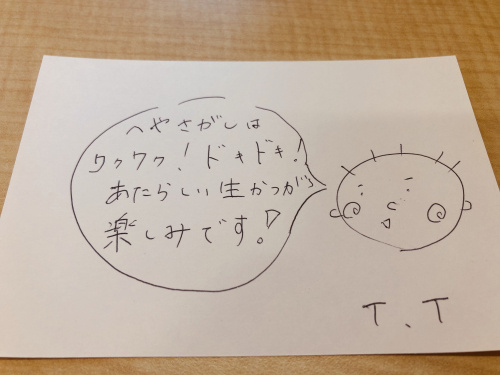 へやさがしは
ワクワク！ドキドキ！
あたらしい生かつが
楽しみです！
T.T